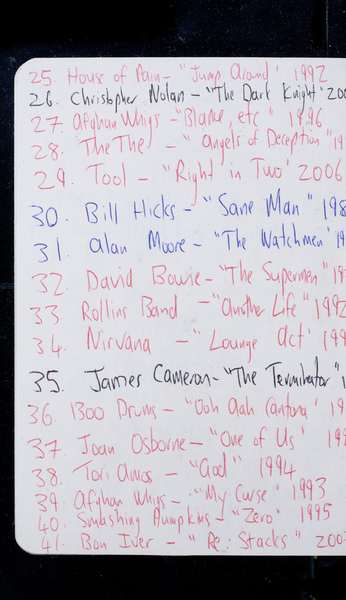 25. House of Pain - "Jump Around" 1992
26. Christopher Nolan - "The Dark Knight" 200
27. Afghan Whigs - "Blame, etc" 1996
28. The The - "Angels of Deception" 19
29. Tool - "Right in Two" 2006
30. Bill Hicks - "Sane Man" 198
31. Alan Moore - "The Watchmen" 19
32. David Bowie - "The Supermen" 19
33. Rollins Band - "Another Life" 1992
34. Nirvana - "Lounge Act" 199
35. James Cameron - "The Terminator" 1
36. 1300 Drums - "Ooh Aah Cantona" 19
37. Joan Osborne - "One of Us" 199
38. Tori Amos - "God" 1994
39. Afghan Whigs - "My Curse" 1993
40. Smashing Pumpkins - "Zero" 1995
41. Bon Iver - "Re: Stacks" 200